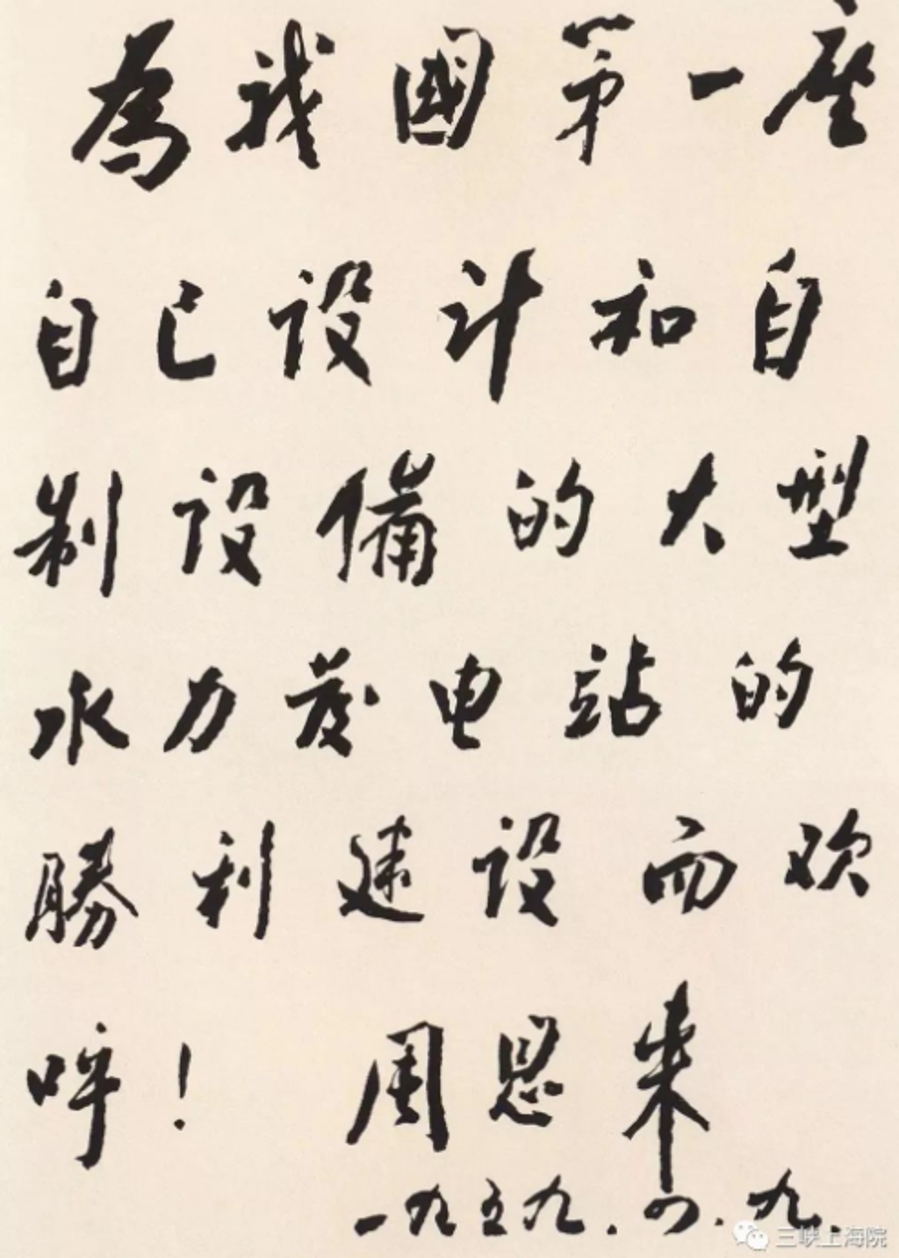 為我國第一座
自己设计和自
制设備的大型
水力发电站的
勝利建设而欢
呼！ 周恩来
一九五九.四.九.
三峡上海院